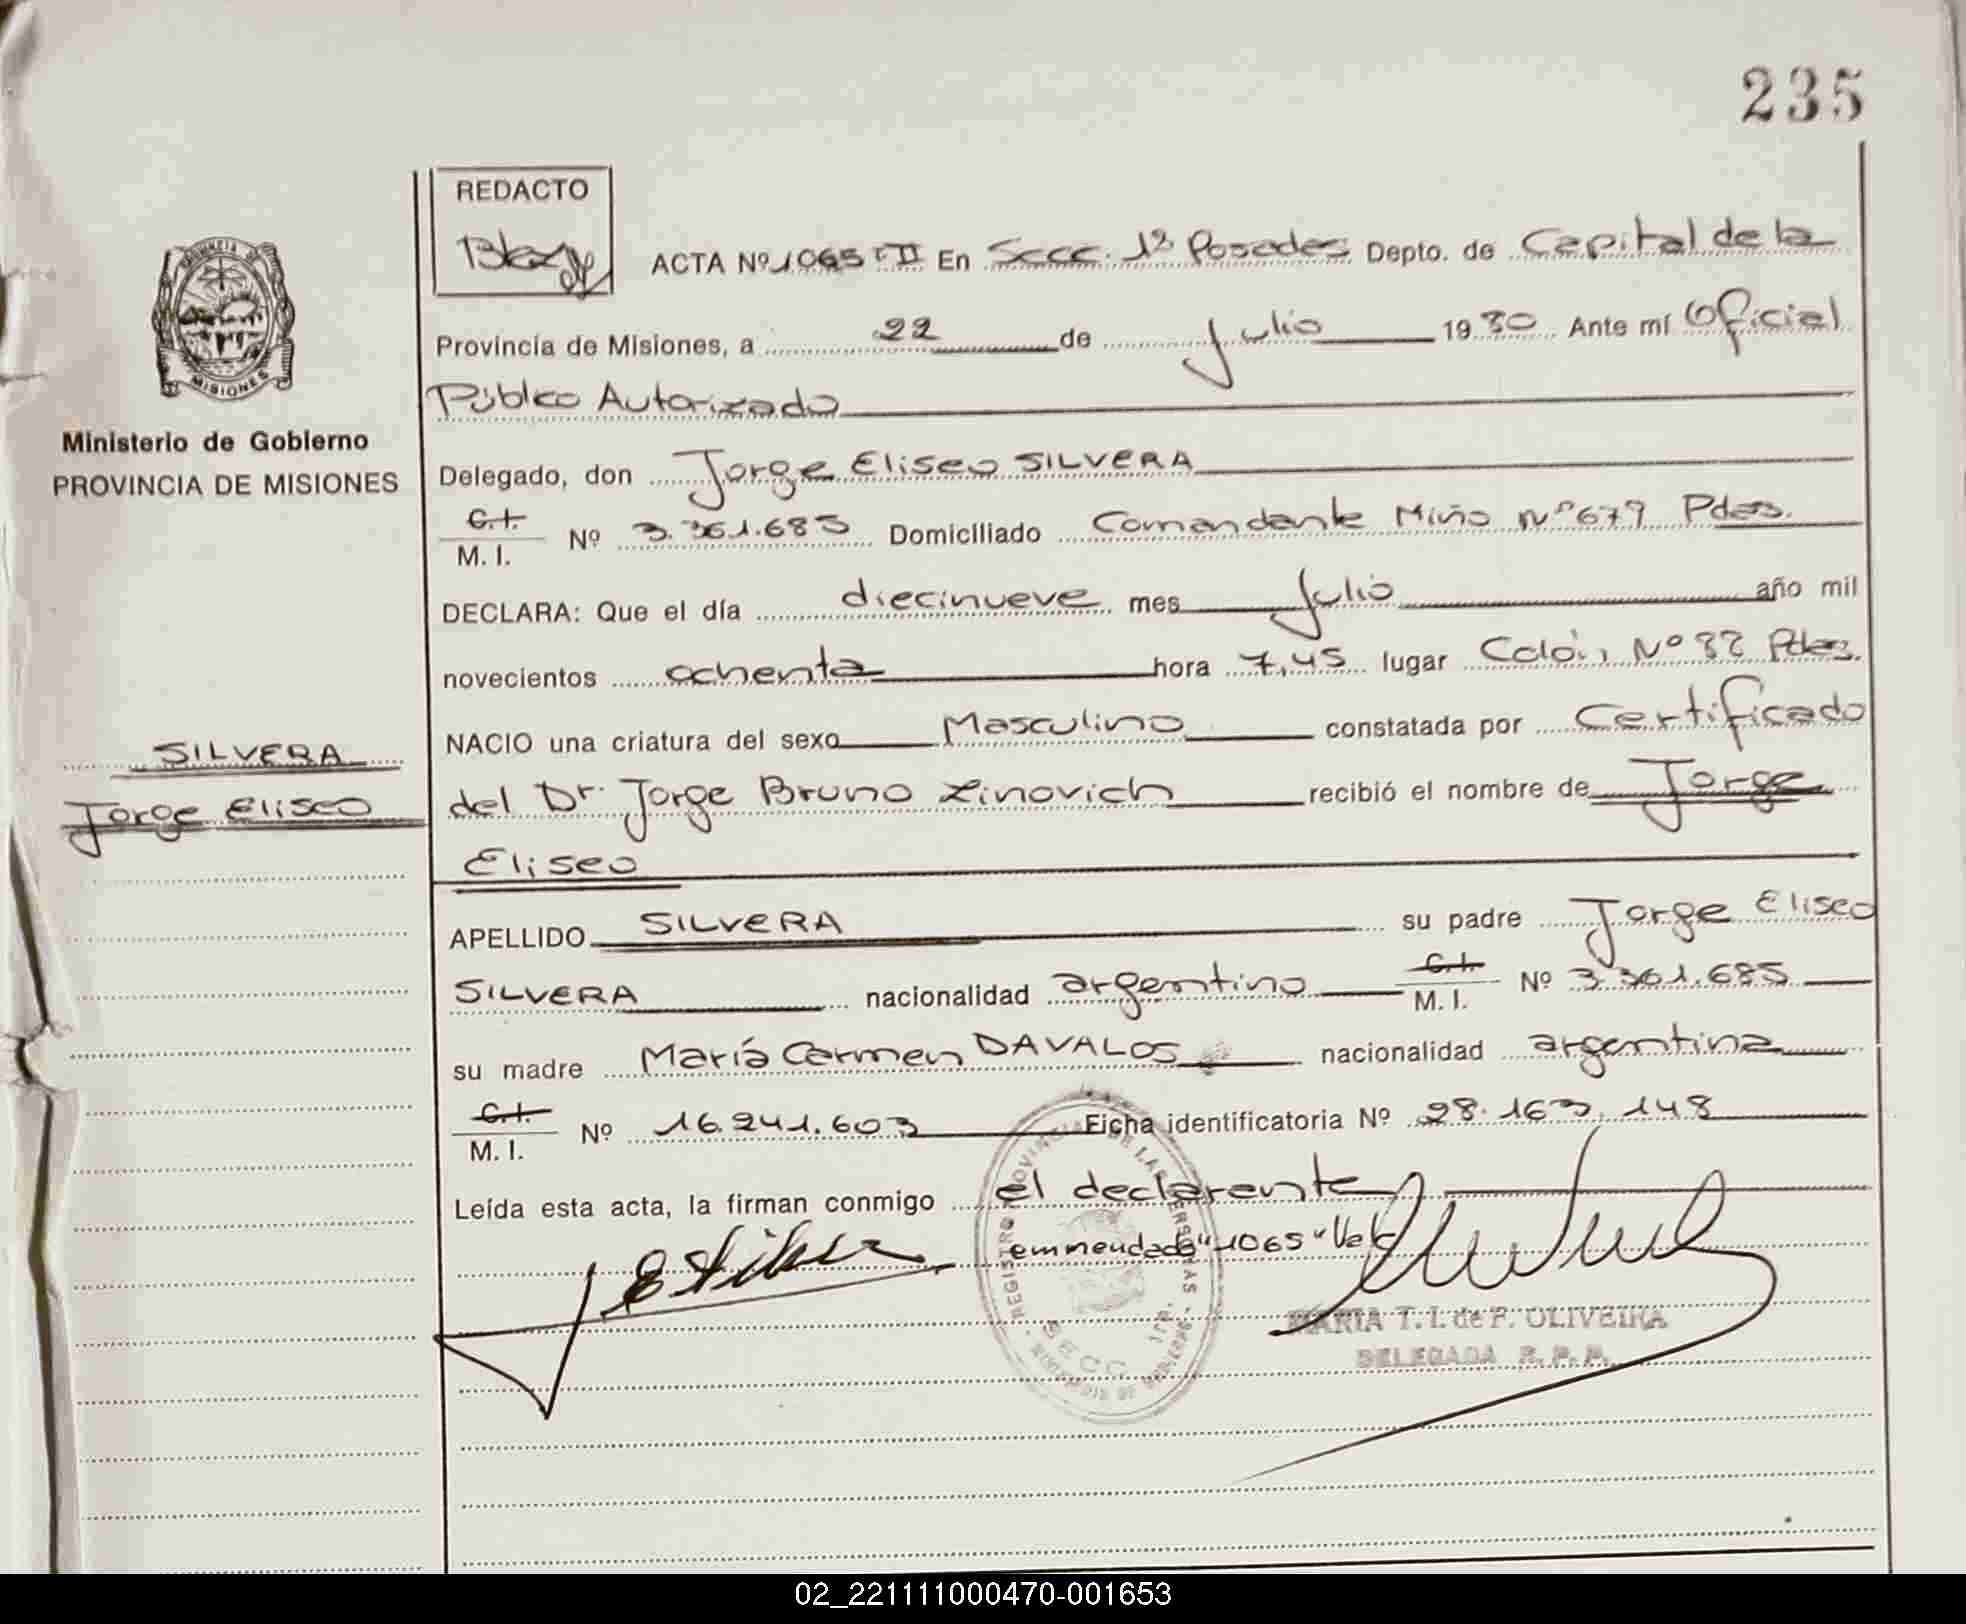 235
REDACTO
ACTA Nº 1065 T II En Secc. 1ª Posadas Depto. de Capital de la
Provincia de Misiones, a 22 de Julio 1980 Ante mí Oficial
Público Autorizado
Delegado, don Jorge Eliseo SILVERA
C.I.
M. I. Nº 3.361.685 Domiciliado Comandante Miño Nº 679 Pdas.
DECLARA: Que el día diecinueve mes Julio año mil
novecientos ochenta hora 7,45 lugar Colón Nº Pdas.
NACIO una criatura del sexo Masculino constatada por Certificado
del Dr. Jorge Bruno Zinovich recibió el nombre de Jorge
Eliseo
APELLIDO SILVERA su padre Jorge Eliseo
SILVERA nacionalidad argentino C.I. M. I. Nº 3.361.685
su madre María Carmen DAVALOS nacionalidad argentina
C.I.
M. I. Nº 16.241.603 Ficha identificatoria Nº 28.163.148
Leída esta acta, la firman conmigo el declarante
emmendado "1065" Vale
MARIA T. I. de F. OLIVEIRA
DELEGADA R. P. P.
REGISTRO PROVINCIAL DE LAS PERSONAS
SECC. 1ra.
PROVINCIA DE MISIONES
Ministerio de Gobierno
PROVINCIA DE MISIONES
SILVERA
Jorge Eliseo
02_221111000470-001653